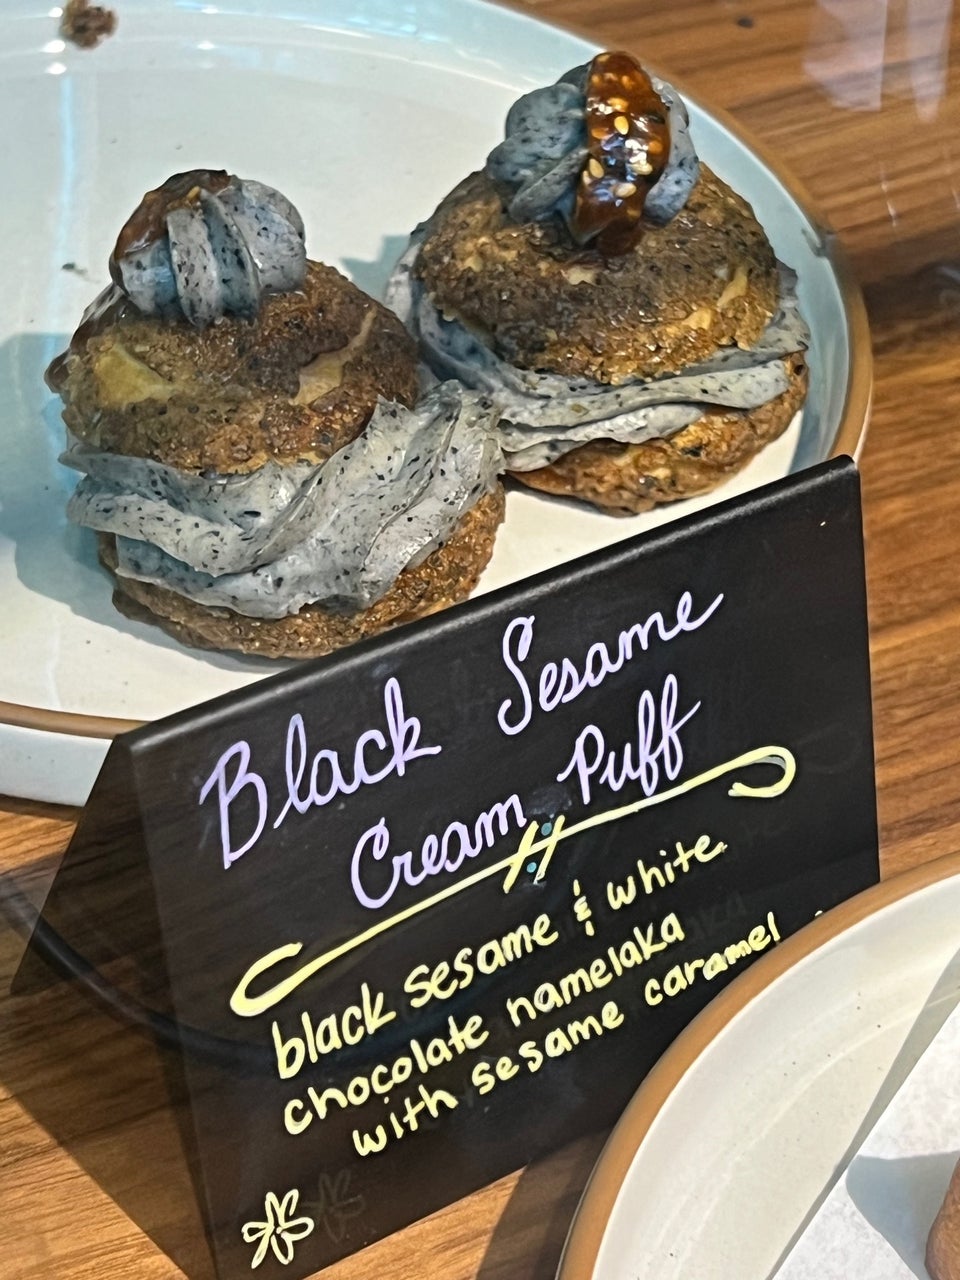 Black Sesame
Cream Puff
black sesame & white
chocolate namelaka
with sesame caramel